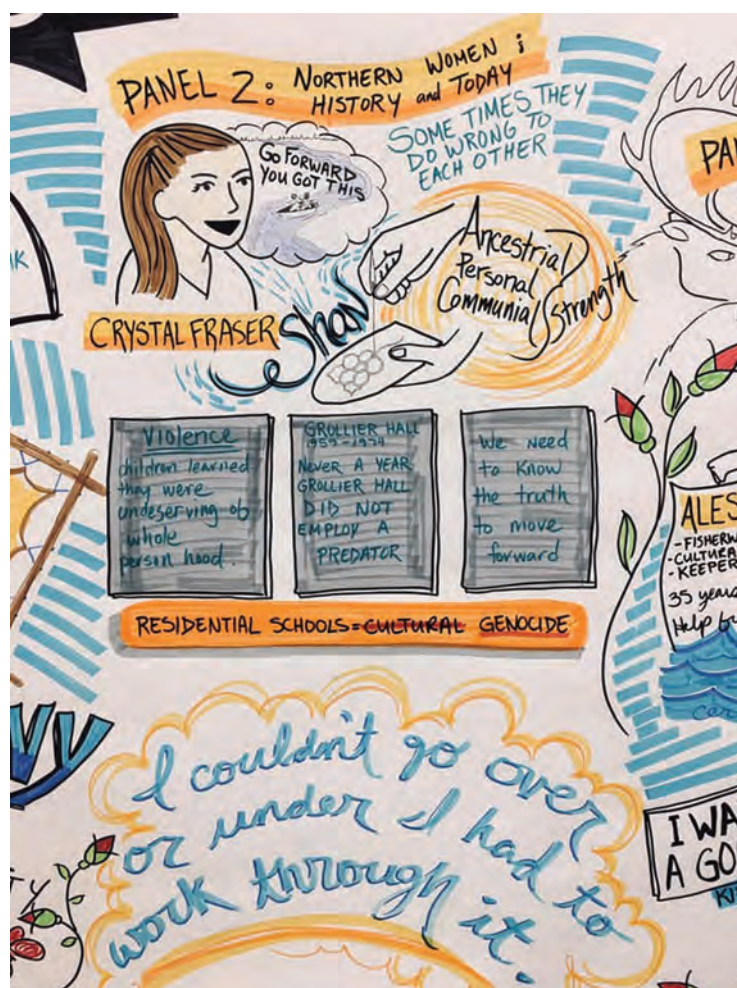 PANEL 2: NORTHERN WOMEN ;
HISTORY and TODAY
SOME TIMES THEY
DO WRONG TO
EACH OTHER
GO FORWARD
YOU GOT THIS
CRYSTAL FRASER
Shan
Ancestrial
Personal
Communial Strength
Violence
children learned
they were
undeserving of
whole
person hood.
GROLLIER HALL
1959-1979
NEVER A YEAR
GROLLIER HALL
DID NOT
EMPLOY A
PREDATOR
We need
to know
the truth
to move
forward
RESIDENTIAL SCHOOLS=CULTURAL GENOCIDE
I couldn't go over
or under I had to
work through it.
PA
ALES
-FISHERW
-CULTURA
-KEEPER
35 years
Help
I WA
A GO